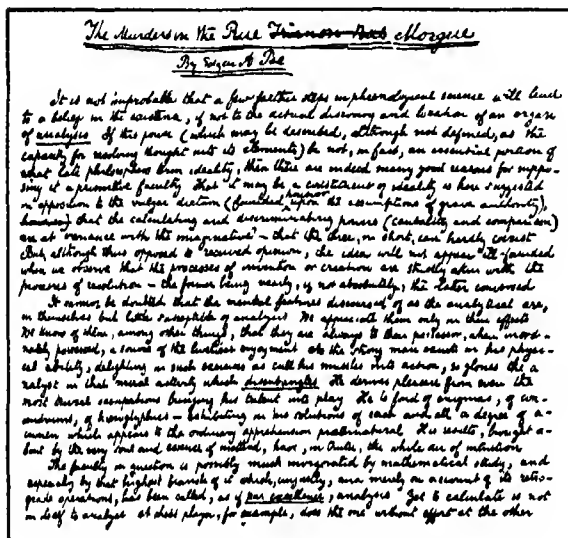 The Murders in the Rue Trianon Bas Morgue
By Edgar A Poe
It is not improbable that a few farther steps in phrenological science will lead
to a belief in the existence, if not to the actual discovery and location of an organ
of analysis If this power (which may be described, although not defined, as the
capacity for resolving thought into its elements) be not, in fact, an essential portion of
what late philosophers term ideality, then there are indeed many good reasons for suppo-
sing it a primitive faculty That it may be a constituent of ideality is here suggested
in opposition to the vulgar dictum (founded, however, upon the assumptions of grave authority),
however, that the calculating and discriminating powers (causality and comparison)
are at variance with the imaginative – that the three, in short, can hardly coexist
But although thus opposed to received opinion, the idea will not appear ill-founded
when we observe that the processes of invention or creation are strictly akin with the
processes of resolution – the former being nearly, if not absolutely, the latter conversed
It cannot be doubted that the mental features discoursed of as the analytical are,
in themselves but little susceptible of analysis We appreciate them only in their effects
We know of them, among other things, that they are always to their possessor, when inordi-
nately possessed, a source of the liveliest enjoyment As the strong man exults in his physi-
cal ability, delighting in such exercises as call his muscles into action, so glories the a-
nalyst in that moral activity which disentangles He derives pleasure from even the
most trivial occupations bringing his talent into play He is fond of enigmas, of con-
undrums, of hieroglyphics – exhibiting in his solutions of each and all a degree of a-
cumen which appears to the ordinary apprehension præternatural His results, brought a-
bout by the very soul and essence of method, have, in truth, the whole air of intuition
The faculty in question is possibly much invigorated by mathematical study, and
especially by that highest branch of it which, unjustly, and merely on account of its retro-
grade operations, has been called, as if par excellence, analysis Yet to calculate is not
in itself to analyze A chess player, for example, does the one without effort at the other